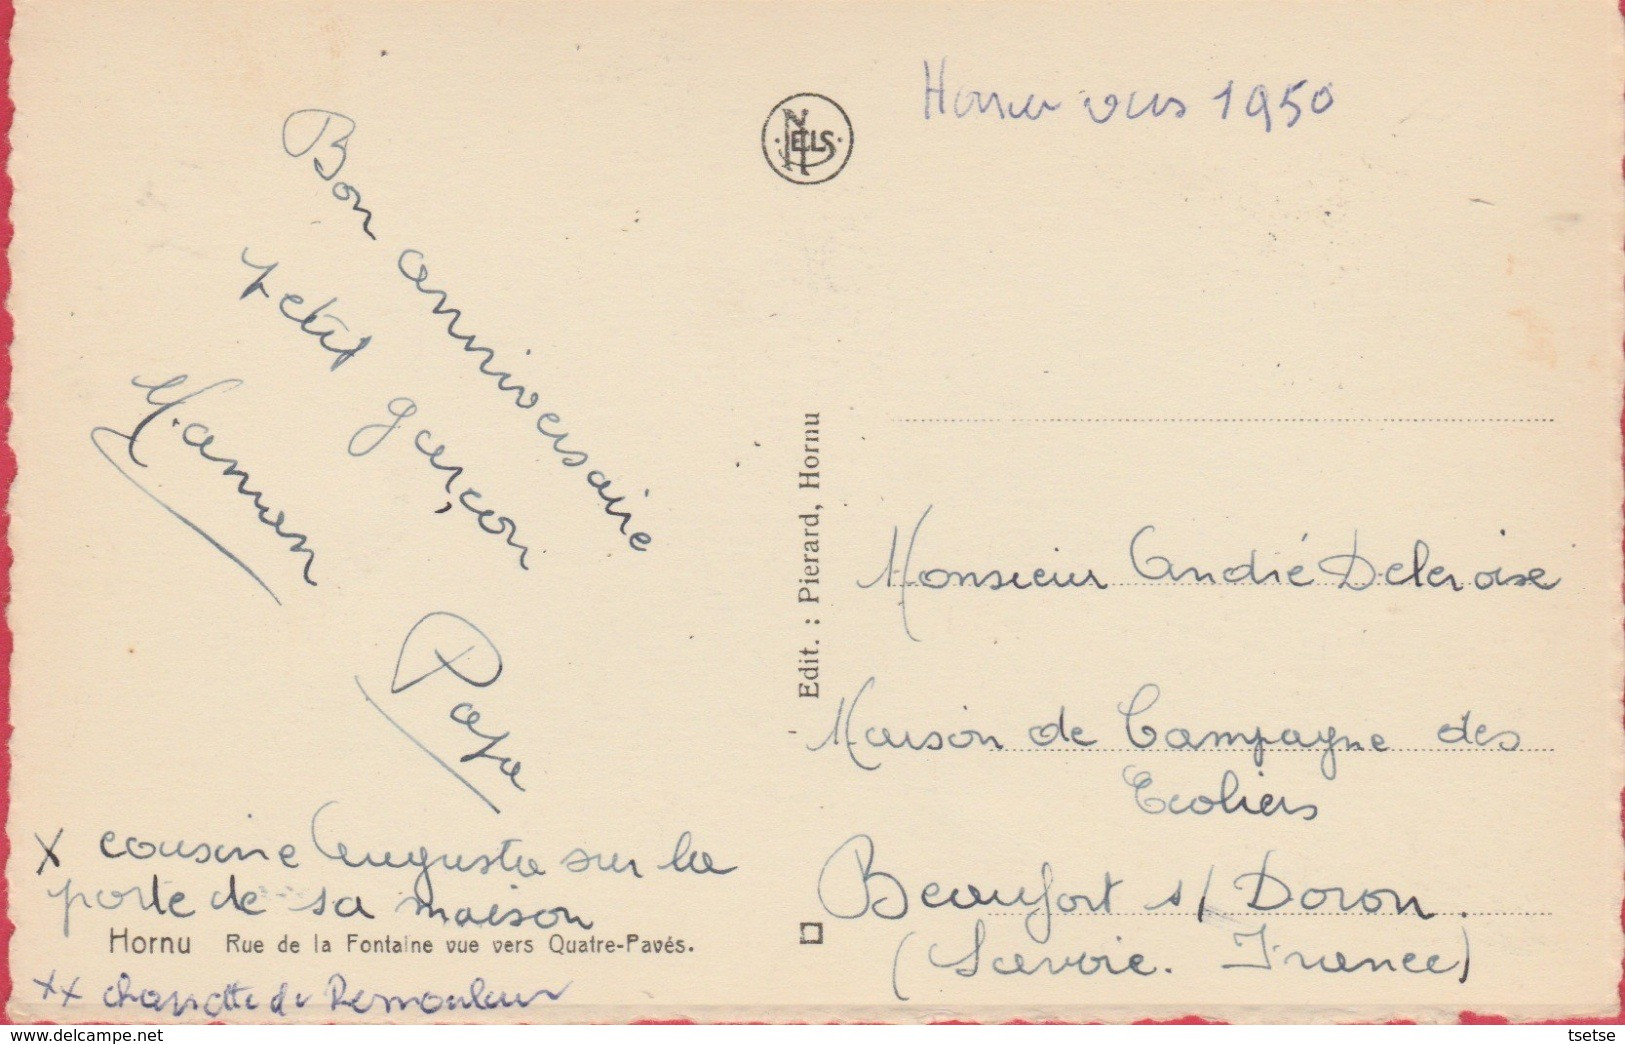 Hornu vers 1950
NELS
Bon anniversaire
petit garçon
Maman
Papa
X cousine Augusta sur la
porte de sa maison
Hornu Rue de la Fontaine vue vers Quatre-Pavés.
XX charrette de Remouleur
Edit. : Pierard, Hornu
Monsieur André Delcroise
Maison de Campagne des
Ecoliers
Beaufort s/ Doron.
(Savoie. France)
delcampe.net
tsetse